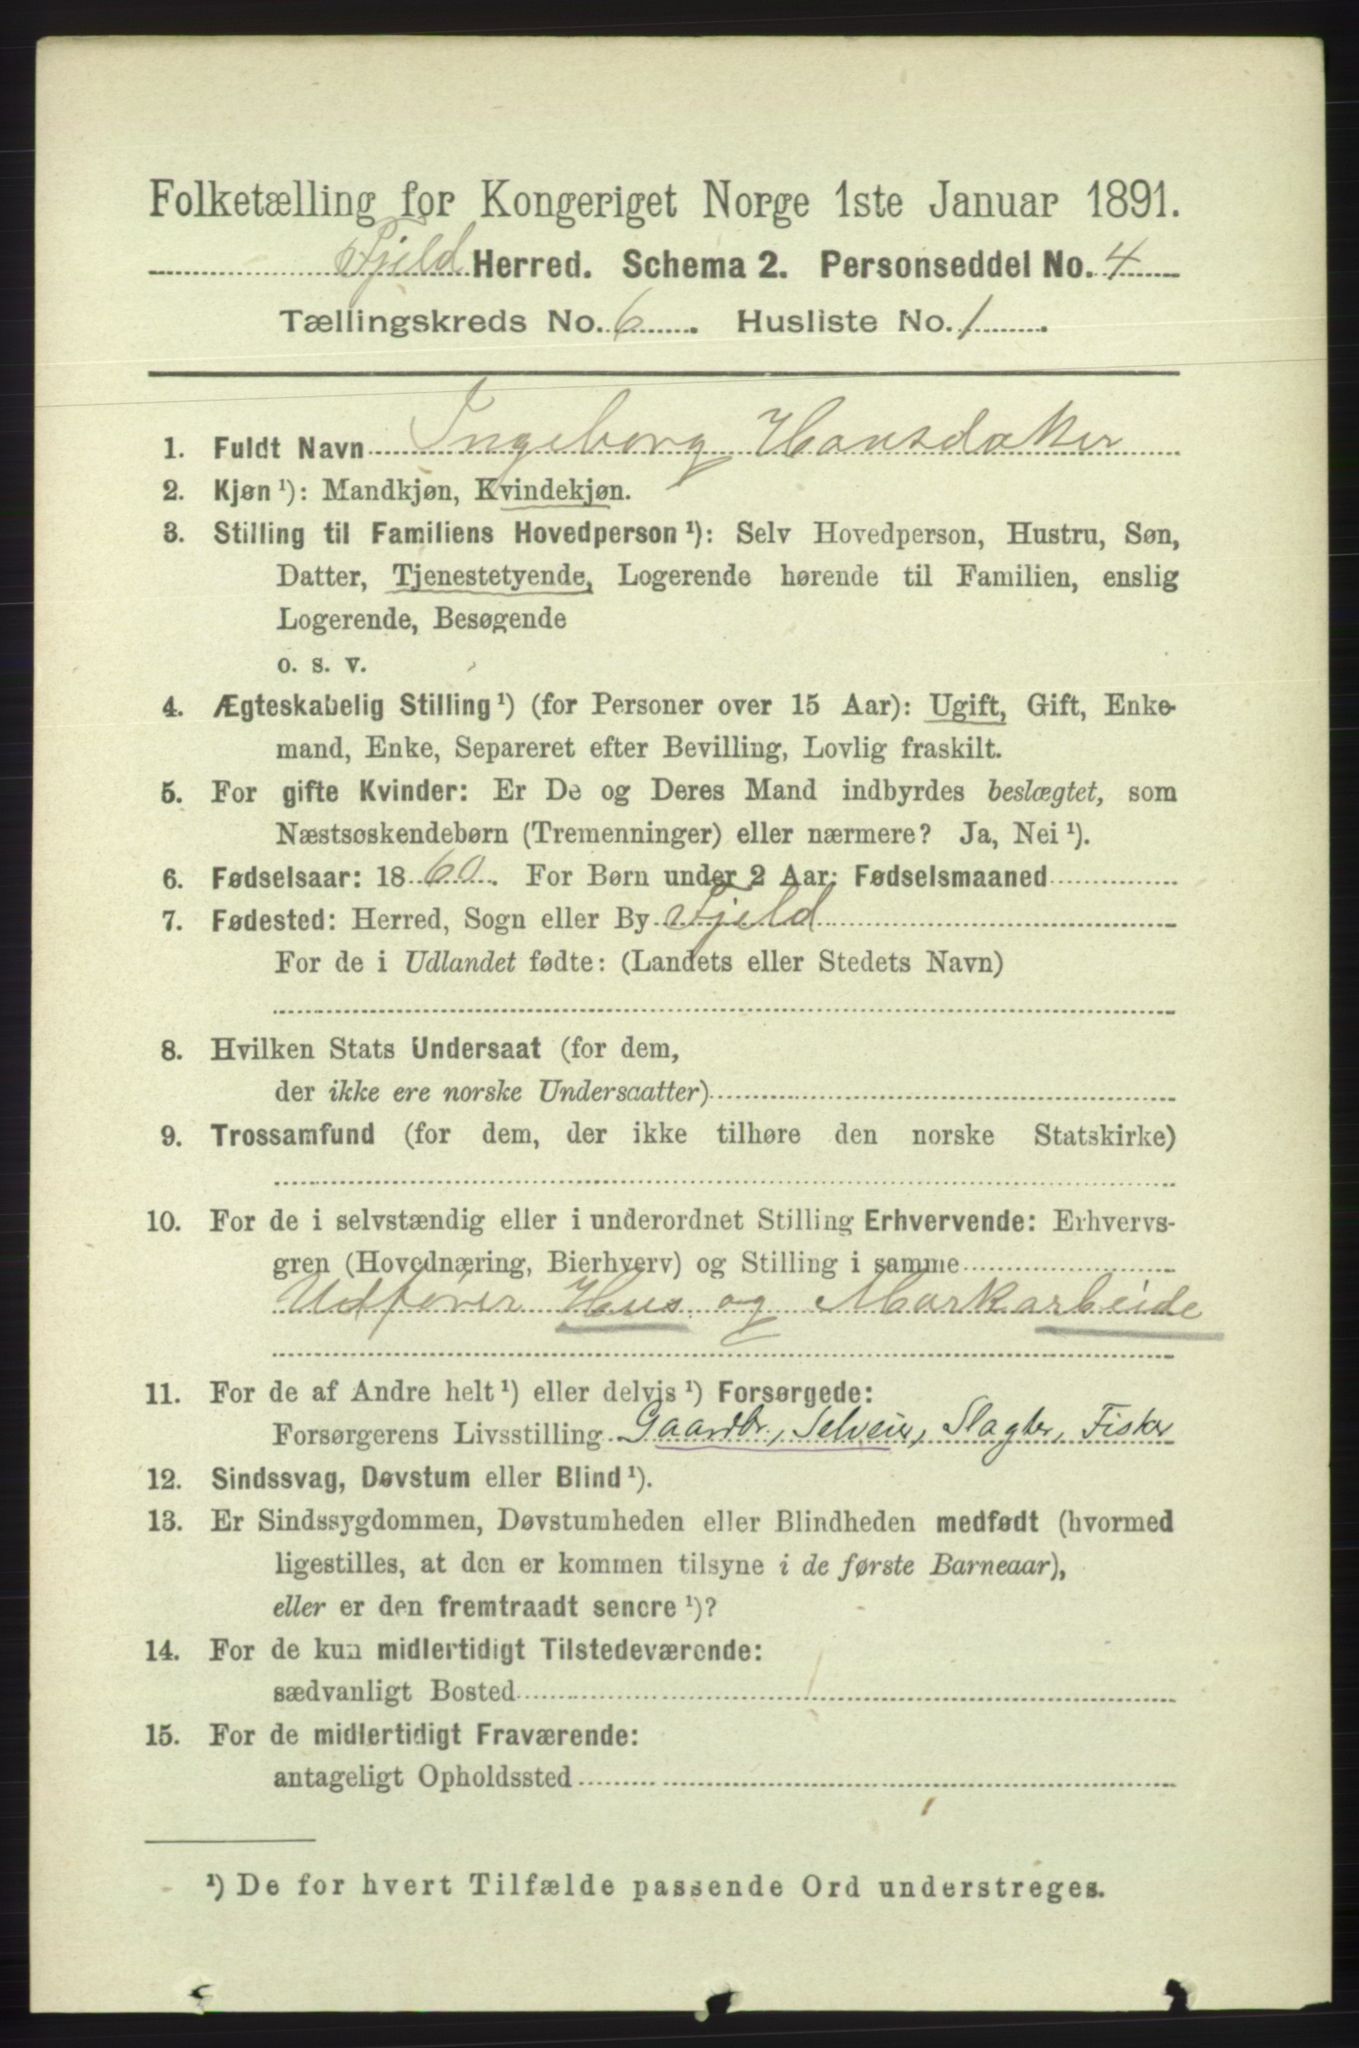 Folketælling for Kongeriget Norge 1ste Januar 1891.
Fjeld Herred. Schema 2. Personseddel No. 4
Tællingskreds No. 6. Husliste No. 1.
1. Fuldt Navn Ingeborg Hansdatter
2. Kjøn¹): Mandkjøn, Kvindekjøn.
3. Stilling til Familiens Hovedperson¹): Selv Hovedperson, Hustru, Søn,
Datter, Tjenestetyende, Logerende hørende til Familien, enslig
Logerende, Besøgende
o. s. v.
4. Ægteskabelig Stilling¹) (for Personer over 15 Aar): Ugift, Gift, Enke-
mand, Enke, Separeret efter Bevilling, Lovlig fraskilt.
5. For gifte Kvinder: Er De og Deres Mand indbyrdes beslægtet, som
Næstsøskendebørn (Tremenninger) eller nærmere? Ja, Nei¹).
6. Fødselsaar: 1860. For Børn under 2 Aar: Fødselsmaaned
7. Fødested: Herred, Sogn eller By Fjeld
For de i Udlandet fødte: (Landets eller Stedets Navn)
8. Hvilken Stats Undersaat (for dem,
der ikke ere norske Undersaatter)
9. Trossamfund (for dem, der ikke tilhøre den norske Statskirke)
10. For de i selvstændig eller i underordnet Stilling Erhvervende: Erhvervs-
gren (Hovednæring, Bierhverv) og Stilling i samme
Udfører Hus og Markarbeide
11. For de af Andre helt¹) eller delvis¹) Forsørgede:
Forsørgerens Livsstilling Gaardbr, Selveier, Slagter, Fisker
12. Sindssvag, Døvstum eller Blind¹).
13. Er Sindssygdommen, Døvstumheden eller Blindheden medfødt (hvormed
ligestilles, at den er kommen tilsyne i de første Barneaar),
eller er den fremtraadt senere¹)?
14. For de kun midlertidigt Tilstedeværende:
sædvanligt Bosted
15. For de midlertidigt Fraværende:
antageligt Opholdssted
¹) De for hvert Tilfælde passende Ord understreges.